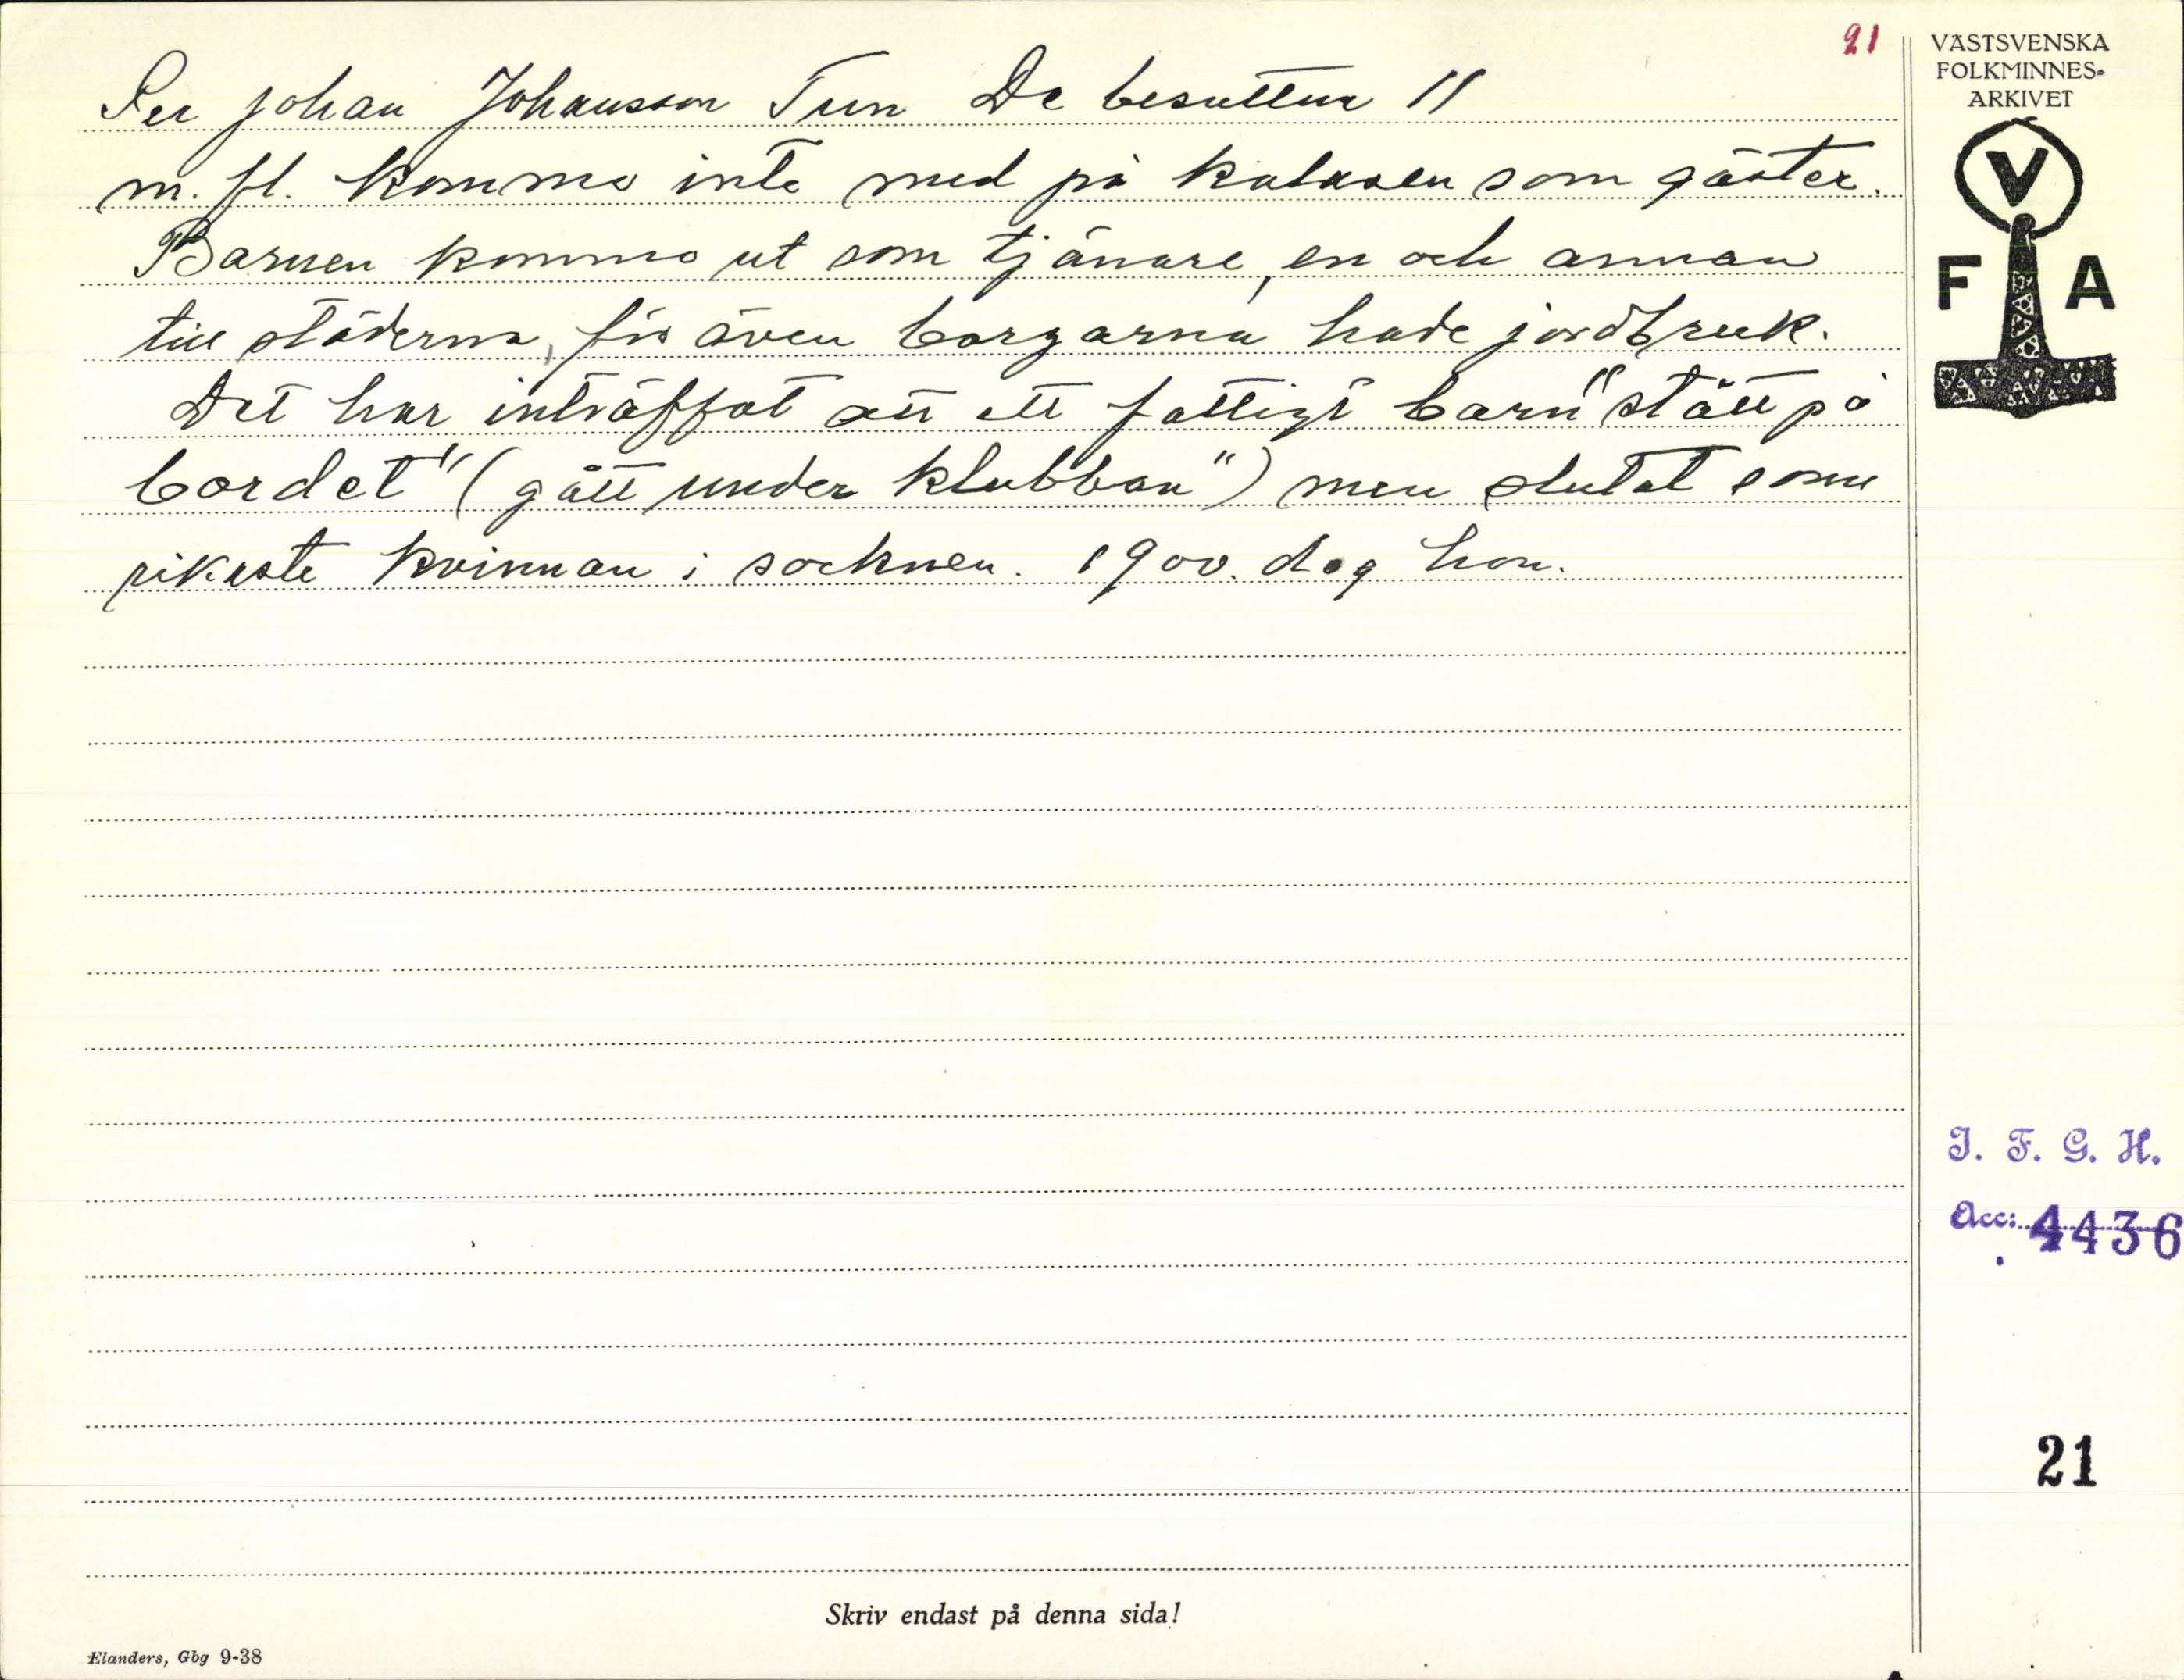 21
Per Johan Johansson Tun De besuttna 11
m. fl. kommo inte med på kalasen som gäster.
Barnen kommo ut som tjänare, en och annan
till städerna, för även borgarna hade jordbruk.
Det har inträffat att ett fattigt barn "stått på
bordet" (gått under klubban") men slutat som
rikaste kvinnan i socknen. 1900. dog hon.
VÄSTSVENSKA
FOLKMINNES-
ARKIVET
V
F A
I. F. G. H.
Acc: 4436
21
Skriv endast på denna sida!
Elanders, Gbg 9-38